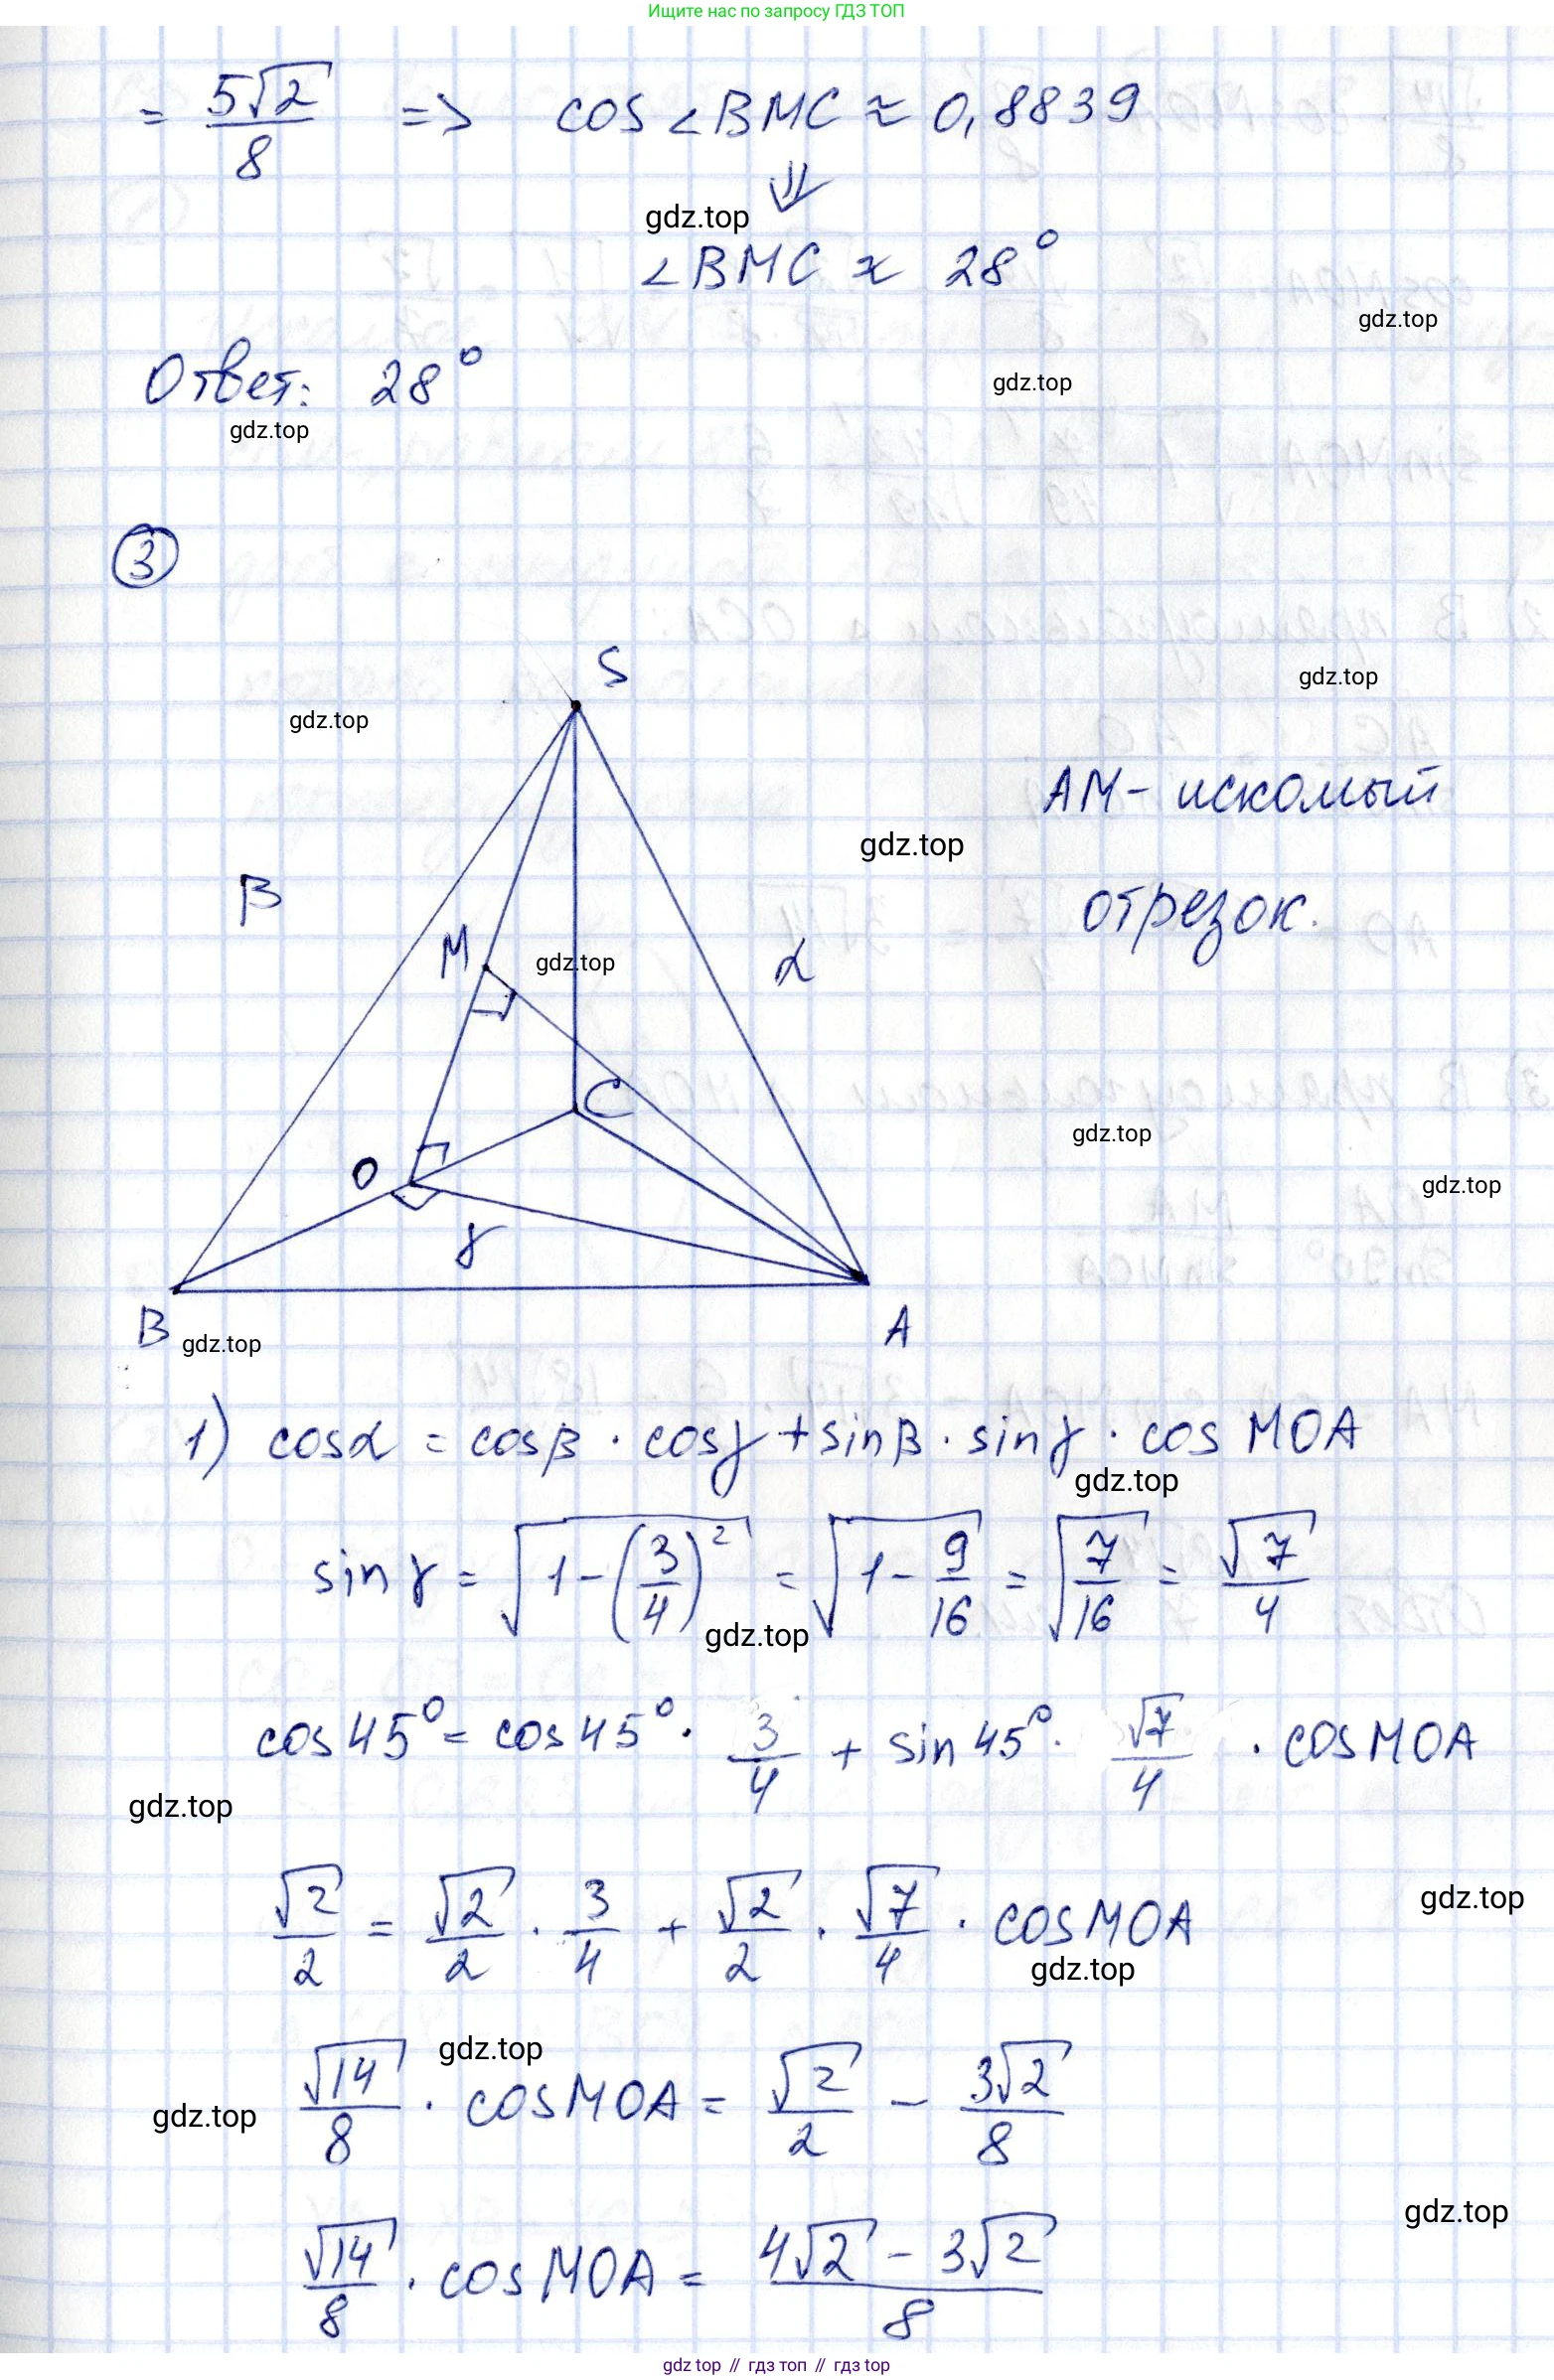 Ищите нас по запросу ГДЗ ТОП
= 5√2/8 => cos∠BMC ≈ 0,8839
⇓
gdz.top
∠BMC ≈ 28°
gdz.top
Ответ: 28°
gdz.top
gdz.top
3
S
gdz.top
gdz.top
AM - искомый
gdz.top
β
отрезок.
M
gdz.top
α
C
gdz.top
O
gdz.top
γ
B
A
gdz.top
1) cosα = cosβ · cosγ + sinβ · sinγ · cos MOA
gdz.top
sinγ = √(1-(3/4)²) = √(1-9/16) = √(7/16) = √7/4
gdz.top
cos45° = cos45° · 3/4 + sin45° · √7/4 · cosMOA
gdz.top
√2/2 = √2/2 · 3/4 + √2/2 · √7/4 · cosMOA
gdz.top
gdz.top
gdz.top
√14/8 · cosMOA = √2/2 - 3√2/8
gdz.top
gdz.top
√14/8 · cosMOA = (4√2 - 3√2)/8
gdz top // гдз топ // гдз top